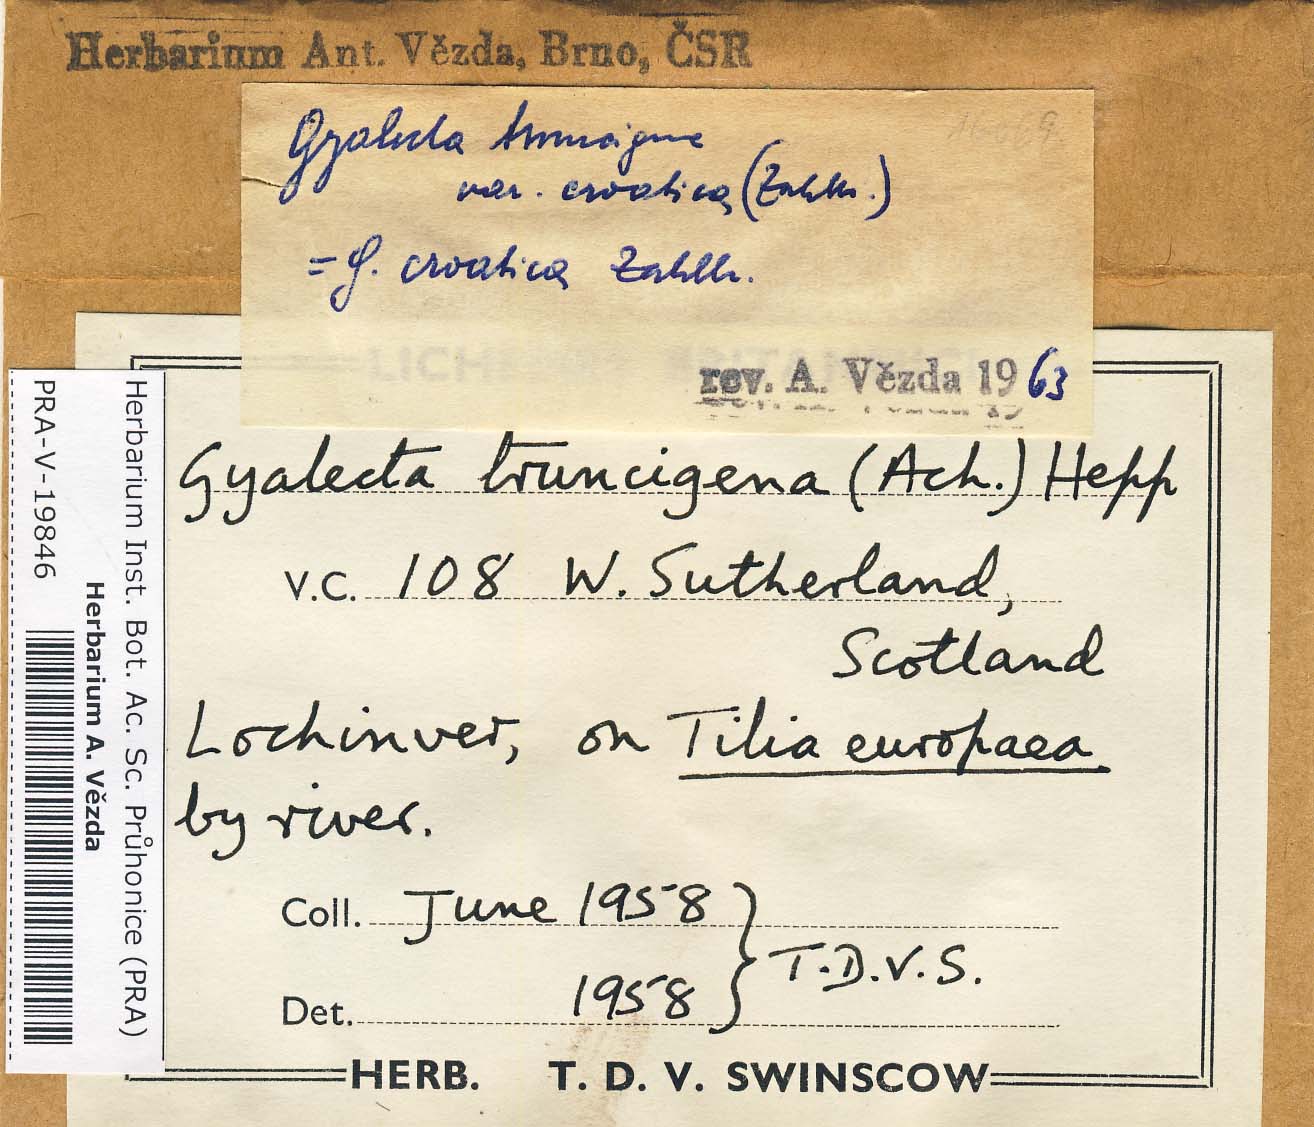 Herbarium Ant. Vězda, Brno, ČSR
Gyalecta truncigena
var. croatica (Zahlbr.)
= G. croatica Zahlbr.
rev. A. Vězda 1963
Gyalecta truncigena (Ach.) Hepp
V.C. 108 W. Sutherland,
Scotland
Lochinver, on Tilia europaea
by river.
Coll. June 1958
T.D.V.S.
Det. 1958
HERB. T. D. V. SWINSCOW
Herbarium Inst. Bot. Ac. Sc. Průhonice (PRA)
Herbarium A. Vězda
PRA-V-19846